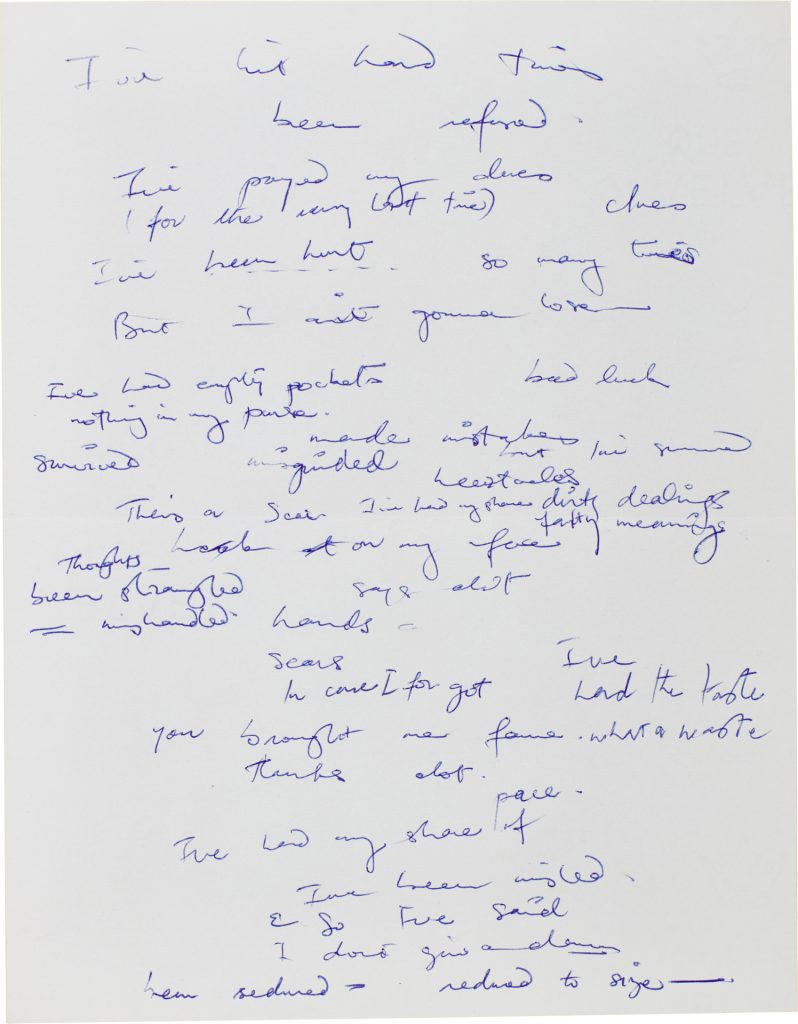 I've hit hard times
been refused.
I've payed my dues
(for the very last time) clues
I've been hurt so many times
But I ain't gonna lose
I've had empty pockets bad luck
nothing in my purse.
made mistakes
survived misguided but I've survived
Theirs a scar I've had my share dirty dealings
on my face meanings
Thoughts
been strangled says alot
= mishandled hands =
scars I've
In case I forgot had the taste
you brought me fame. what a waste
thanks alot.
pace.
I've had my share of
I've been misled.
& so I've said
I don't give a damn
been seduced = reduced to size —